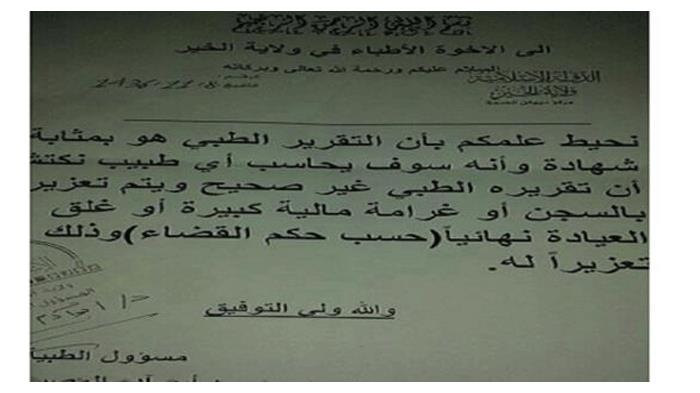 بسم الله الرحمن الرحيم
الى الاخوة الأطباء في ولاية الخير
السلام عليكم ورحمة الله تعالى وبركاته
الدولة الإسلامية
ولاية الخير
1436-11-8
نحيط علمكم بأن التقرير الطبي هو بمثابة
شهادة وأنه سوف يحاسب أي طبيب نكتش
أن تقريره الطبي غير صحيح ويتم تعزير
بالسجن أو غرامة مالية كبيرة أو غلق
العيادة نهائياً(حسب حكم القضاء)وذلك
تعزيراً له.
والله ولي التوفيق
مسؤول الطبية